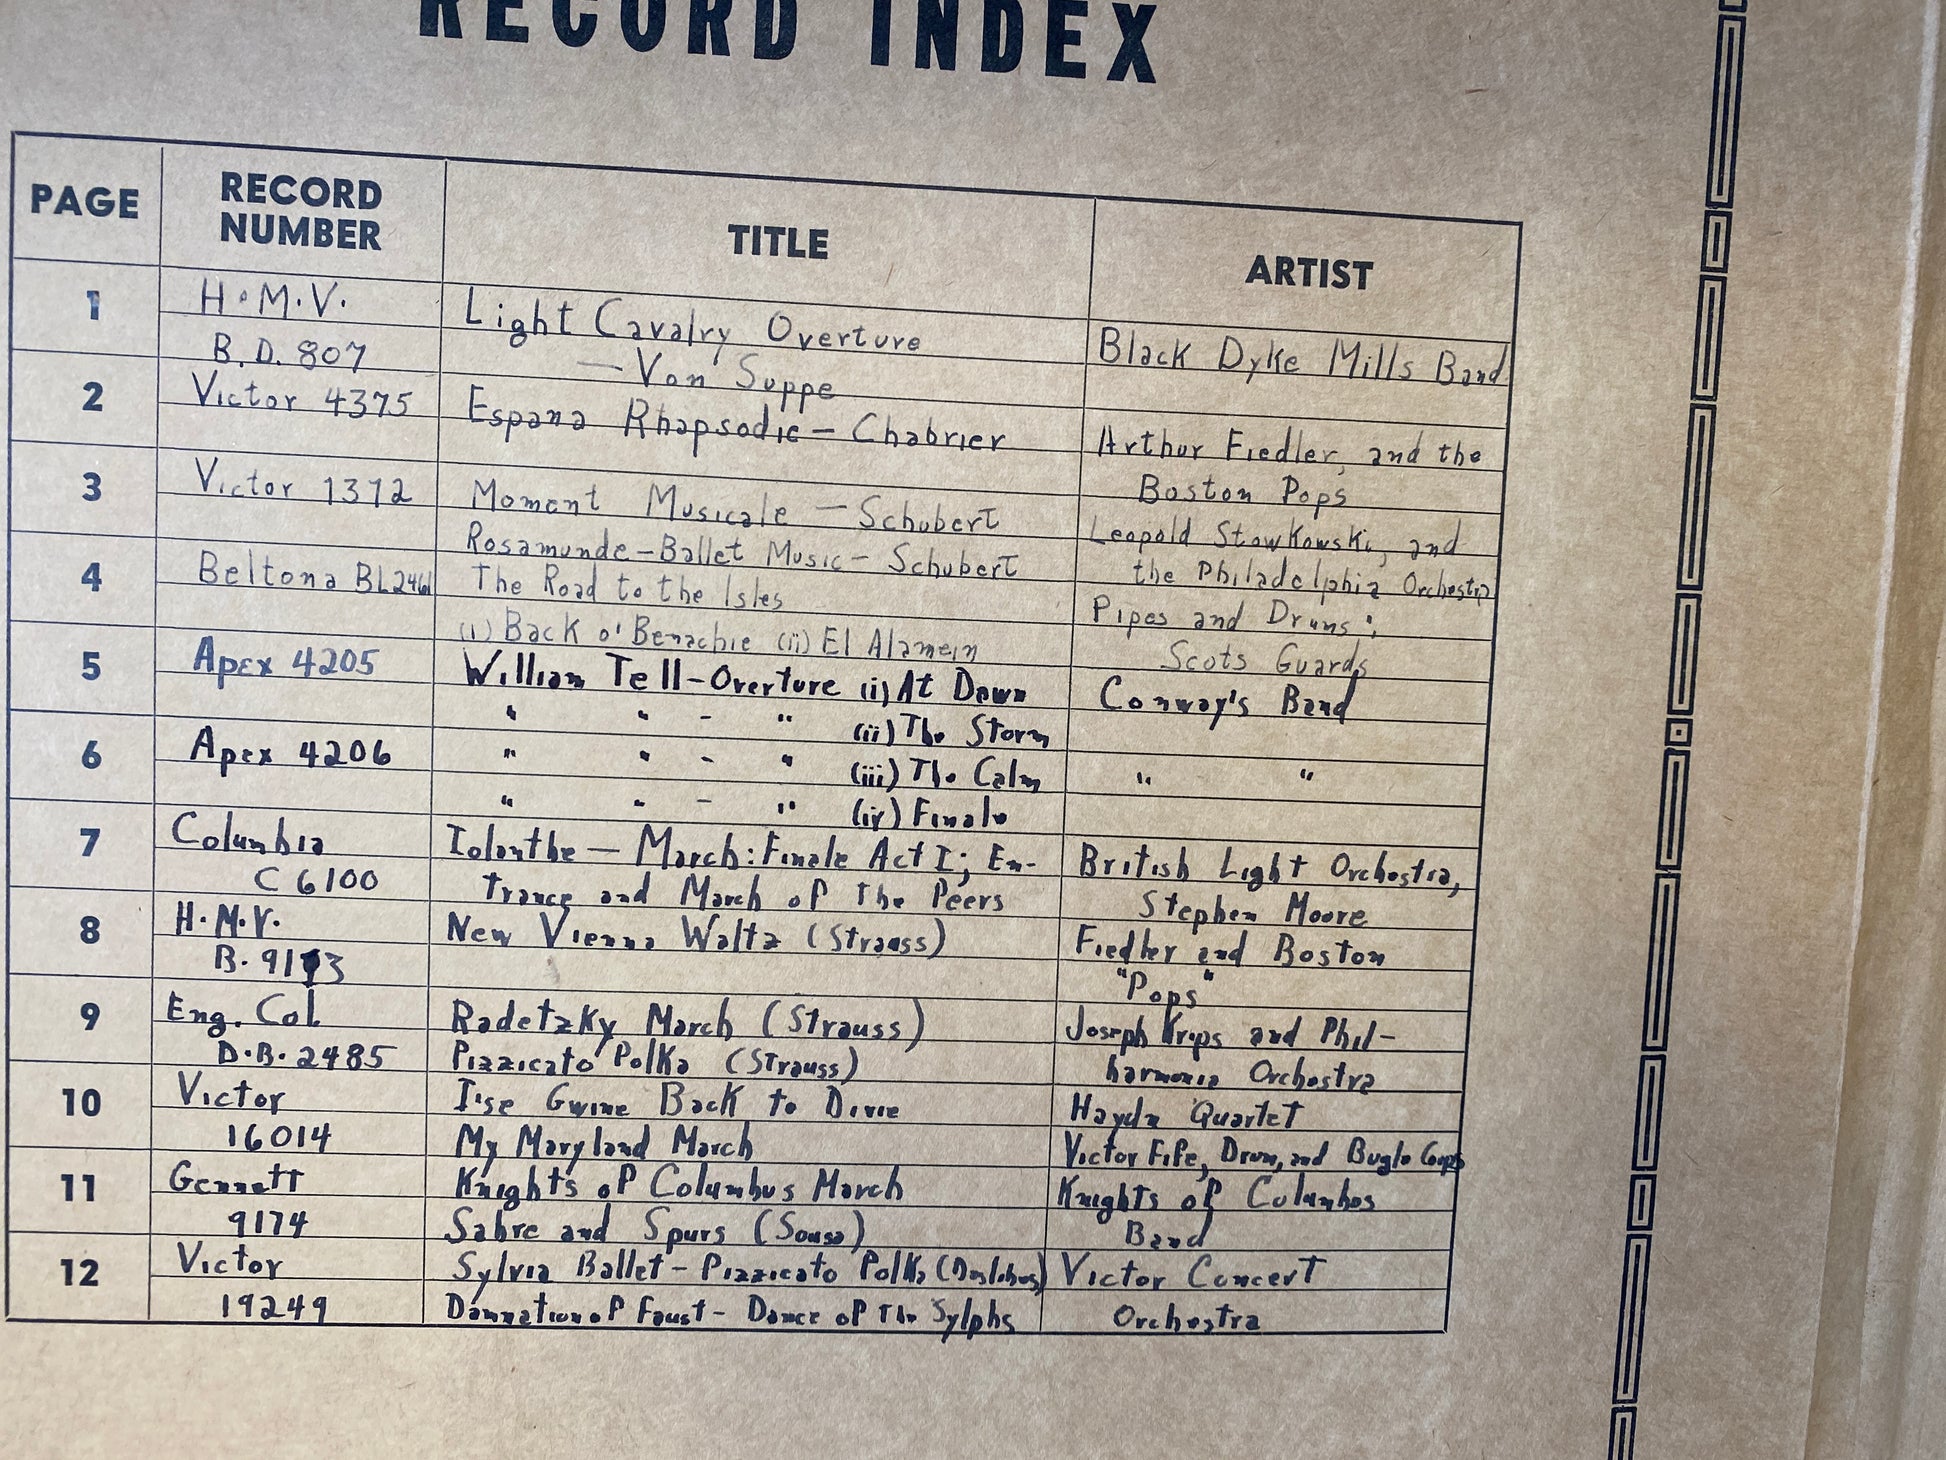 RECORD INDEX
PAGE RECORD NUMBER TITLE ARTIST
1 H.M.V. Light Cavalry Overture Black Dyke Mills Band
B.D. 807 — Von Suppe
2 Victor 4375 Espana Rhapsodie — Chabrier Arthur Fiedler, and the
Boston Pops
3 Victor 1312 Moment Musicale — Schubert Leopold Stowkowski, and
Rosamunde — Ballet Music — Schubert the Philadelphia Orchestra
4 Beltona BL2461 The Road to the Isles Pipes and Drums;
(i) Back o' Benachie (ii) El Alamein Scots Guards
5 Apex 4205 William Tell — Overture (i) At Dawn Conway's Band
" " - " (ii) The Storm
6 Apex 4206 " " - " (iii) The Calm " "
" " - " (iv) Finale
7 Columbia Iolanthe — March: Finale Act I; En- British Light Orchestra,
C 6100 trance and March of the Peers Stephen Moore
8 H.M.V. New Vienna Waltz (Strauss) Fiedler and Boston
B. "Pops"
9 Eng. Col. Radetzky March (Strauss) Joseph Krips and Phil-
D.B. 2485 Pizzicato Polka (Strauss) harmonia Orchestra
10 Victor I'se Gwine Back to Dixie Haydn Quartet
16014 My Maryland March Victor Fife, Drum, and Bugle Corps
11 Gennett Knights of Columbus March Knights of Columbus
9174 Sabre and Spurs (Sousa) Band
12 Victor Sylvia Ballet — Pizzicato Polka Victor Concert
19249 Damnation of Faust — Dance of the Sylphs Orchestra